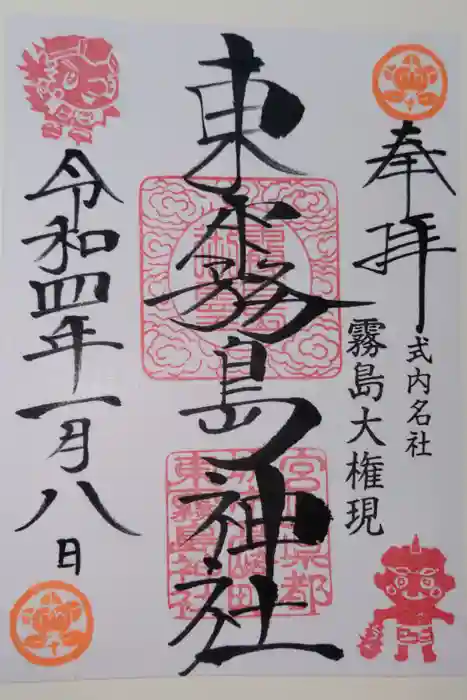 奉拝
式内名社
霧島大権現
東霧島神社
東霧島神社
令和四年一月八日